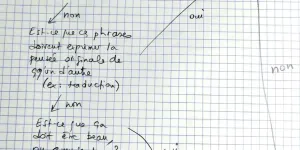 non
oui
Est-ce que ce phrases
doivent exprimer la
pensée originale de
qq'un d'autre
(ex: traduction)
non
non
Est-ce que ça
doit être beau,